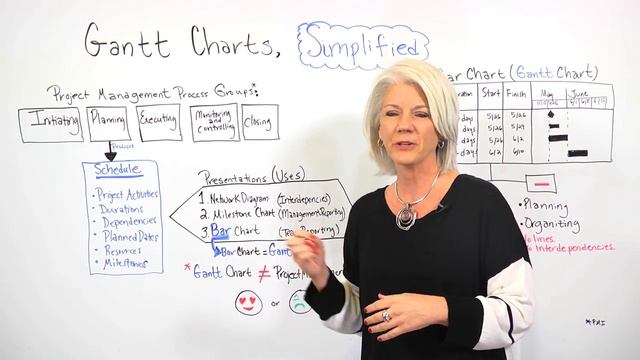 Gantt Charts, Simplified
Project Management Process Groups*:
Initiating
Planning
Executing
Monitoring and Controlling
Closing
Product
Schedule
• Project Activities
• Durations
• Dependencies
• Planned Dates
• Resources
• Milestones
Presentations (Uses)
1. Network Diagram (Interdependencies)
2. Milestone Chart (Management Reporting)
3 Bar Chart (Reporting)
Bar Chart = Gantt
*Gantt Chart ≠ Project
or
Bar Chart (Gantt Chart)
Start Finish May June
-days 5/26 5/26
-days 5/26 5/29
-days 5/26 6/2
-days 6/2 6/10
• Planning
• Organizing
No lines.
Interdependencies.
*PMI